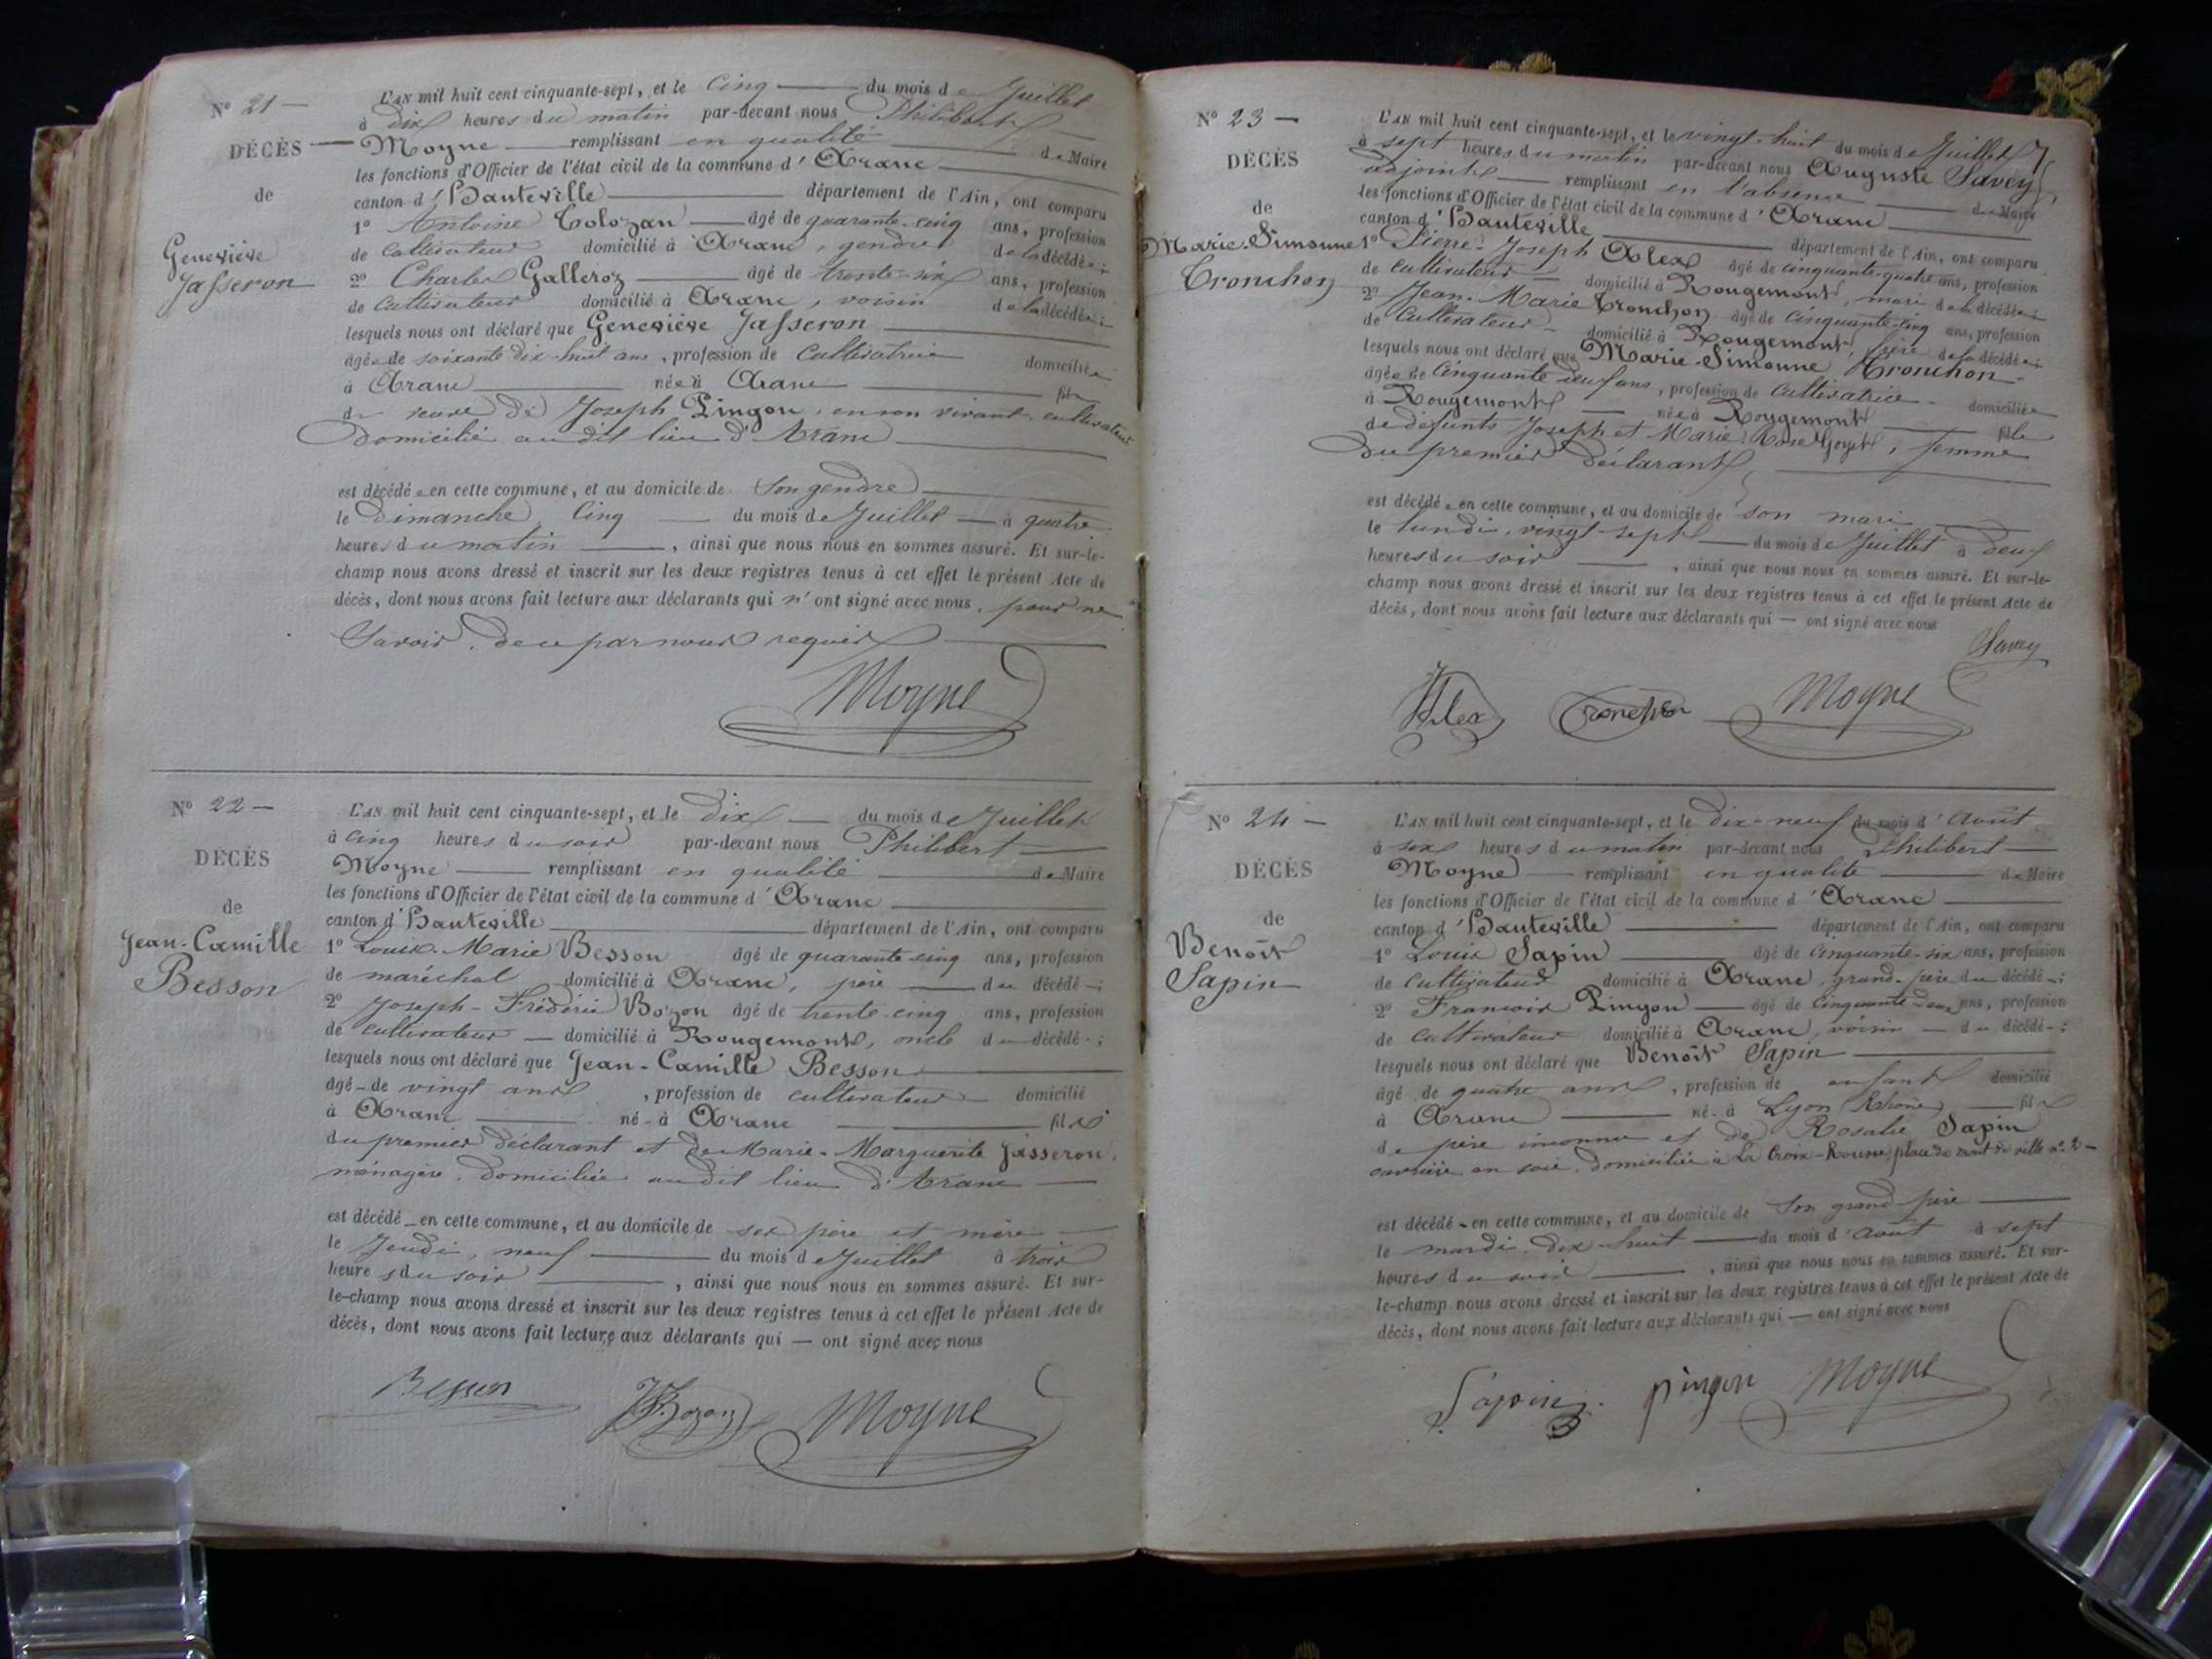 N° 21 —
DÉCÈS —
de
Geneviève
Jasseron
L'AN mil huit cent cinquante-sept, et le Cinq — du mois de Juillet
à dix heures du matin par-devant nous Philibert —
Moyne — remplissant en qualité — de Maire
les fonctions d'Officier de l'état civil de la commune d'Aranc —
canton d'Hauteville — département de l'Ain, ont comparu
1° Antoine Colozan — âgé de quarante-cinq ans, profession
de Cultivateur domicilié à Aranc, gendre de la décédée;
2° Charles Galleroz — âgé de trente-six ans, profession
de Cultivateur domicilié à Aranc, voisin de la décédée;
lesquels nous ont déclaré que Geneviève Jasseron —
âgée de soixante dix-huit ans, profession de Cultivatrice domiciliée
à Aranc — née à Aranc — fil
de veuve de Joseph Pingon, en son vivant, cultivateur
domicilié au dit lieu d'Aranc —
est décédée en cette commune, et au domicile de son gendre —
le Dimanche Cinq — du mois de Juillet — à quatre
heures du matin —, ainsi que nous nous en sommes assuré. Et sur-le-
champ nous avons dressé et inscrit sur les deux registres tenus à cet effet le présent Acte de
décès, dont nous avons fait lecture aux déclarants qui n'ont signé avec nous, pour ne
Savoir, de ce par nous requis —
Moyne
N° 22 —
DÉCÈS
de
Jean-Camille
Besson
L'AN mil huit cent cinquante-sept, et le Dix — du mois de Juillet
à cinq heures du soir par-devant nous Philibert —
Moyne — remplissant en qualité — de Maire
les fonctions d'Officier de l'état civil de la commune d'Aranc —
canton d'Hauteville — département de l'Ain, ont comparu
1° Louis-Marie Besson âgé de quarante-cinq ans, profession
de maréchal domicilié à Aranc, père — du décédé —;
2° Joseph-Frédéric Bozon âgé de trente-cinq ans, profession
de cultivateur — domicilié à Rougemont, oncle du décédé -;
lesquels nous ont déclaré que Jean-Camille Besson —
âgé - de vingt ans, profession de cultivateur — domicilié
à Aranc — né - à Aranc — fils
du premier déclarant et de Marie-Marguerite Jasseron,
ménagère, domiciliée au dit lieu d'Aranc —
est décédé - en cette commune, et au domicile de ses père et mère —
le Jeudi, neuf — du mois de Juillet à trois
heures du soir —, ainsi que nous nous en sommes assuré. Et sur-
le-champ nous avons dressé et inscrit sur les deux registres tenus à cet effet le présent Acte de
décès, dont nous avons fait lecture aux déclarants qui — ont signé avec nous
Besson Bozon Moyne
N° 23 —
DÉCÈS
de
Marie-Simonne
Tronchon
L'AN mil huit cent cinquante-sept, et le vingt-huit du mois de Juillet
à sept heures du matin par-devant nous Auguste Savey,
adjoint — remplissant en l'absence — du Maire
les fonctions d'Officier de l'état civil de la commune d'Aranc —
canton d'Hauteville — département de l'Ain, ont comparu
1° Pierre-Joseph Alex âgé de cinquante-quatre ans, profession
de cultivateur — domicilié à Rougemont, mari de la décédée;
2° Jean-Marie Tronchon âgé de cinquante-cinq ans, profession
de Cultivateur - domicilié à Rougemont, frère de la décédée;
lesquels nous ont déclaré que Marie-Simonne Tronchon -
âgée de Cinquante neuf ans, profession de Cultivatrice - domiciliée
à Rougemont — née à Rougemont — fille
de défunts Joseph et Marie-Rose Goyet, femme
du premier déclarant, —
est décédée en cette commune, et au domicile de son mari —
le lundi, vingt-sept — du mois de Juillet à deux
heures du soir —, ainsi que nous nous en sommes assuré. Et sur-le-
champ nous avons dressé et inscrit sur les deux registres tenus à cet effet le présent Acte de
décès, dont nous avons fait lecture aux déclarants qui — ont signé avec nous
Savey
Alex Tronchon Moyne
N° 24 —
DÉCÈS
de
Benoît
Sapin
L'AN mil huit cent cinquante-sept, et le dix-neuf du mois d'Août
à six heures du matin par-devant nous Philibert —
Moyne — remplissant en qualité — de Maire
les fonctions d'Officier de l'état civil de la commune d'Aranc —
canton d'Hauteville — département de l'Ain, ont comparu
1° Louis Sapin — âgé de cinquante-six ans, profession
de Cultivateur domicilié à Aranc, grand-père du décédé -;
2° François Pingon — âgé de cinquante-deux ans, profession
de cultivateur domicilié à Aranc, voisin — du décédé -;
lesquels nous ont déclaré que Benoît Sapin —
âgé de quatre ans, profession de enfant domicilié
à Aranc — né - à Lyon (Rhône) — fils
de père inconnu et de Rosalie Sapin
ouvrière en soie, domiciliée à La Croix-Rousse, place de ville n° 2 —
est décédé - en cette commune, et au domicile de son grand-père —
le mardi, dix-huit — du mois d'Août à sept
heures du soir —, ainsi que nous nous en sommes assuré. Et sur-
le-champ nous avons dressé et inscrit sur les deux registres tenus à cet effet le présent Acte de
décès, dont nous avons fait lecture aux déclarants qui — ont signé avec nous
Sapin pingon Moyne